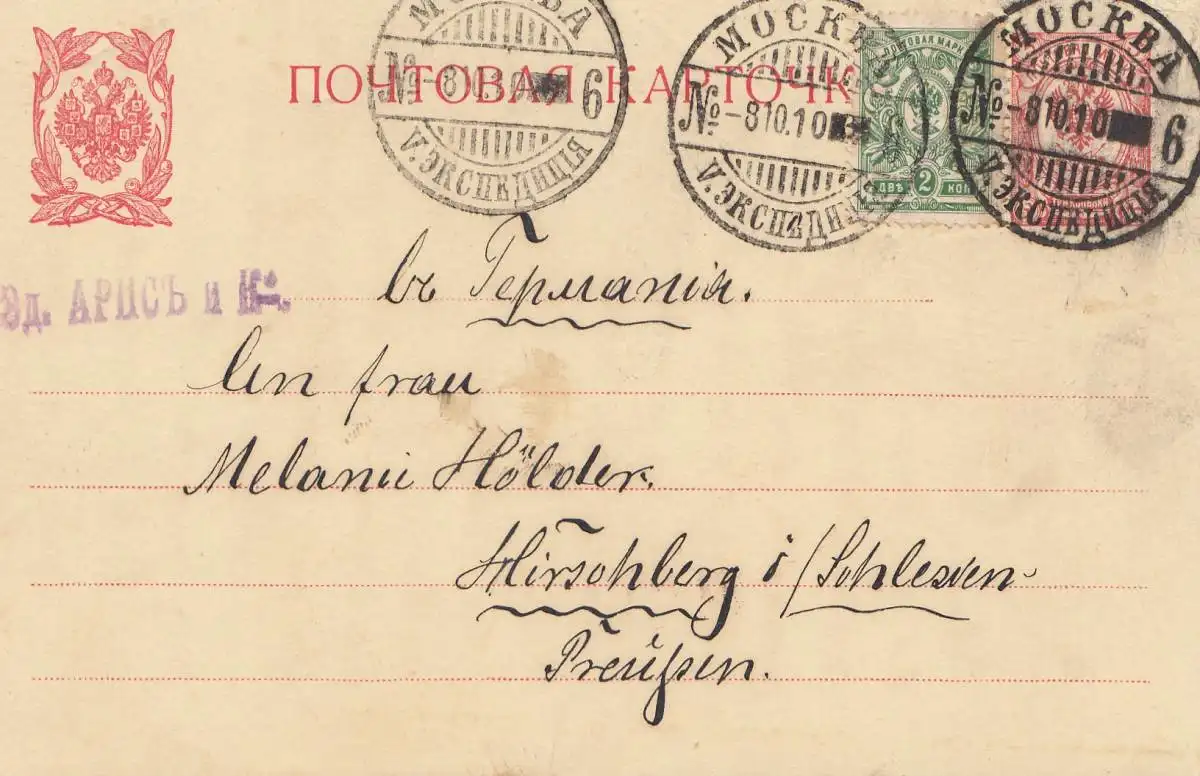 ПОЧТОВАЯ КАРТОЧК
МОСКВА
№ -810.10 6
V. ЭКСПЕДИЦІЯ
МОСКВ
№ -810.10
V. ЭКСПЕДИЦІ
ПОЧТОВАЯ МАРК
ДВѢ 2 КОП
МОСКВА
№ -810.10 6
V. ЭКСПЕДИЦІЯ
Эд. АРПСЪ и Ко.
въ Германія.
An frau
Melanie Hölder.
Hirschberg i/Schlesien
Preüßen.